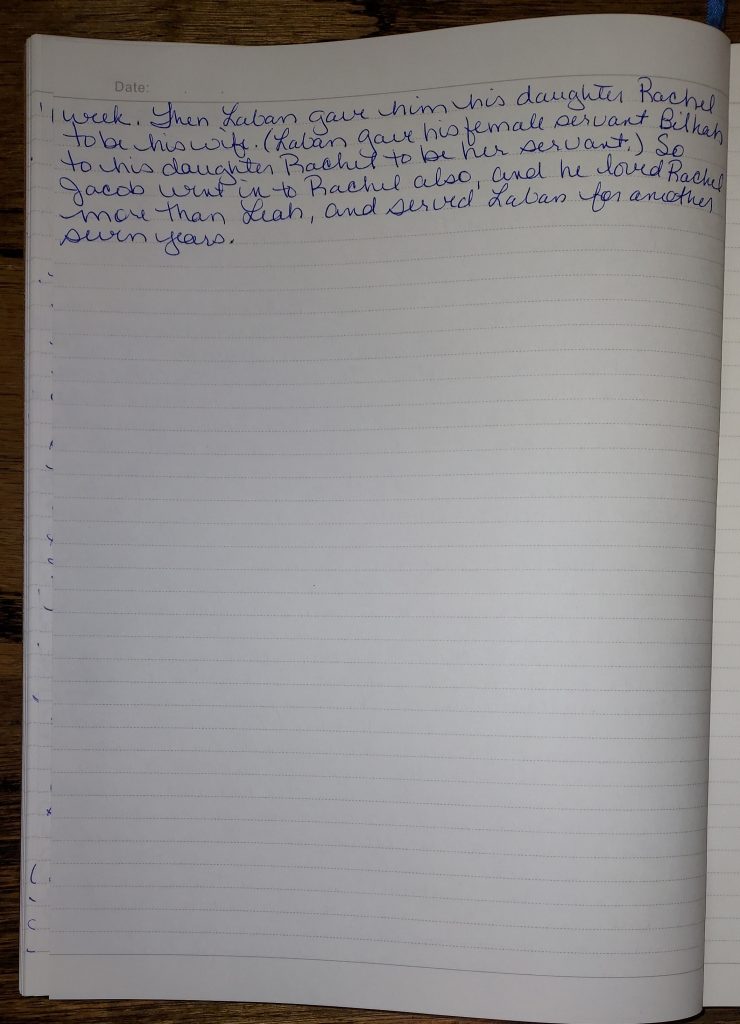 Date:
week. Then Laban gave him his daughter Rachel
to be his wife. (Laban gave his female servant Bilhah
to his daughter Rachel to be her servant.) So
Jacob went in to Rachel also, and he loved Rachel
more than Leah, and served Laban for another
seven years.